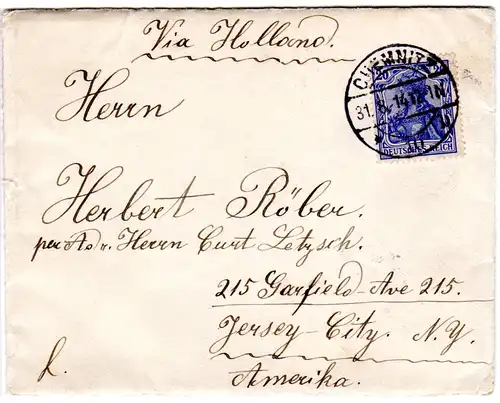 Via Holland.
CHEMNITZ
31.8.14.12-1N
20
DEUTSCHES REICH
Herrn
Herbert Röber.
per Adr. Herrn Curt Letzsch.
215 Garfield-Ave 215.
Jersey-City. N.Y.
Amerika.